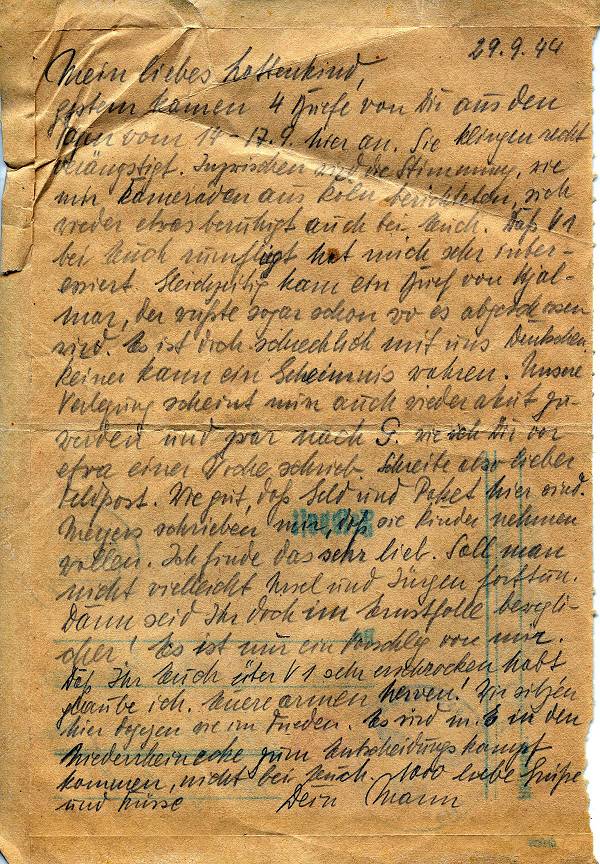 29.9.44
Mein liebes Lottenkind,
gestern kamen 4 Briefe von Dir aus den
Tagen vom 14-17.9. hier an. Sie klingen recht
verängstigt. Inzwischen wird die Stimmung, wie
mir Kameraden aus Köln berichteten, sich
wieder etwas beruhigt auch bei Euch. Daß V1
bei Euch rumfliegt hat mich sehr inter-
essiert. Gleichzeitig kam ein Brief von Hjal-
mar, der wußte sogar schon wo es abgeschossen
wird. Es ist doch schrecklich mit uns Deutschen
keiner kann ein Geheimnis wahren. Unsere
Verlegung scheint nun auch wieder akut zu
werden und zwar nach G. wie ich Dir vor
etwa einer Woche schrieb. Schreibe also lieber
Feldpost. Wie gut, daß Geld und Paket hier sind.
Meyers schrieben mir, daß sie Kinder nehmen
wollen. Ich finde das sehr lieb. Soll man
nicht vielleicht und Jürgen forttun.
Dann seid Ihr doch im Ernstfalle bewegli-
cher! Es ist nur ein Vorschlag von mir.
Daß Ihr Euch über V1 sehr erschrocken habt
glaube ich. Euere armen Nerven! Wir sitzen
hier dagegen wie im Frieden. Es wird m. E in den
Niederrheinecke zum Entscheidungskampf
kommen, nicht bei Euch. 1000 liebe Grüße
und Küsse Dein Mann
Feldpost